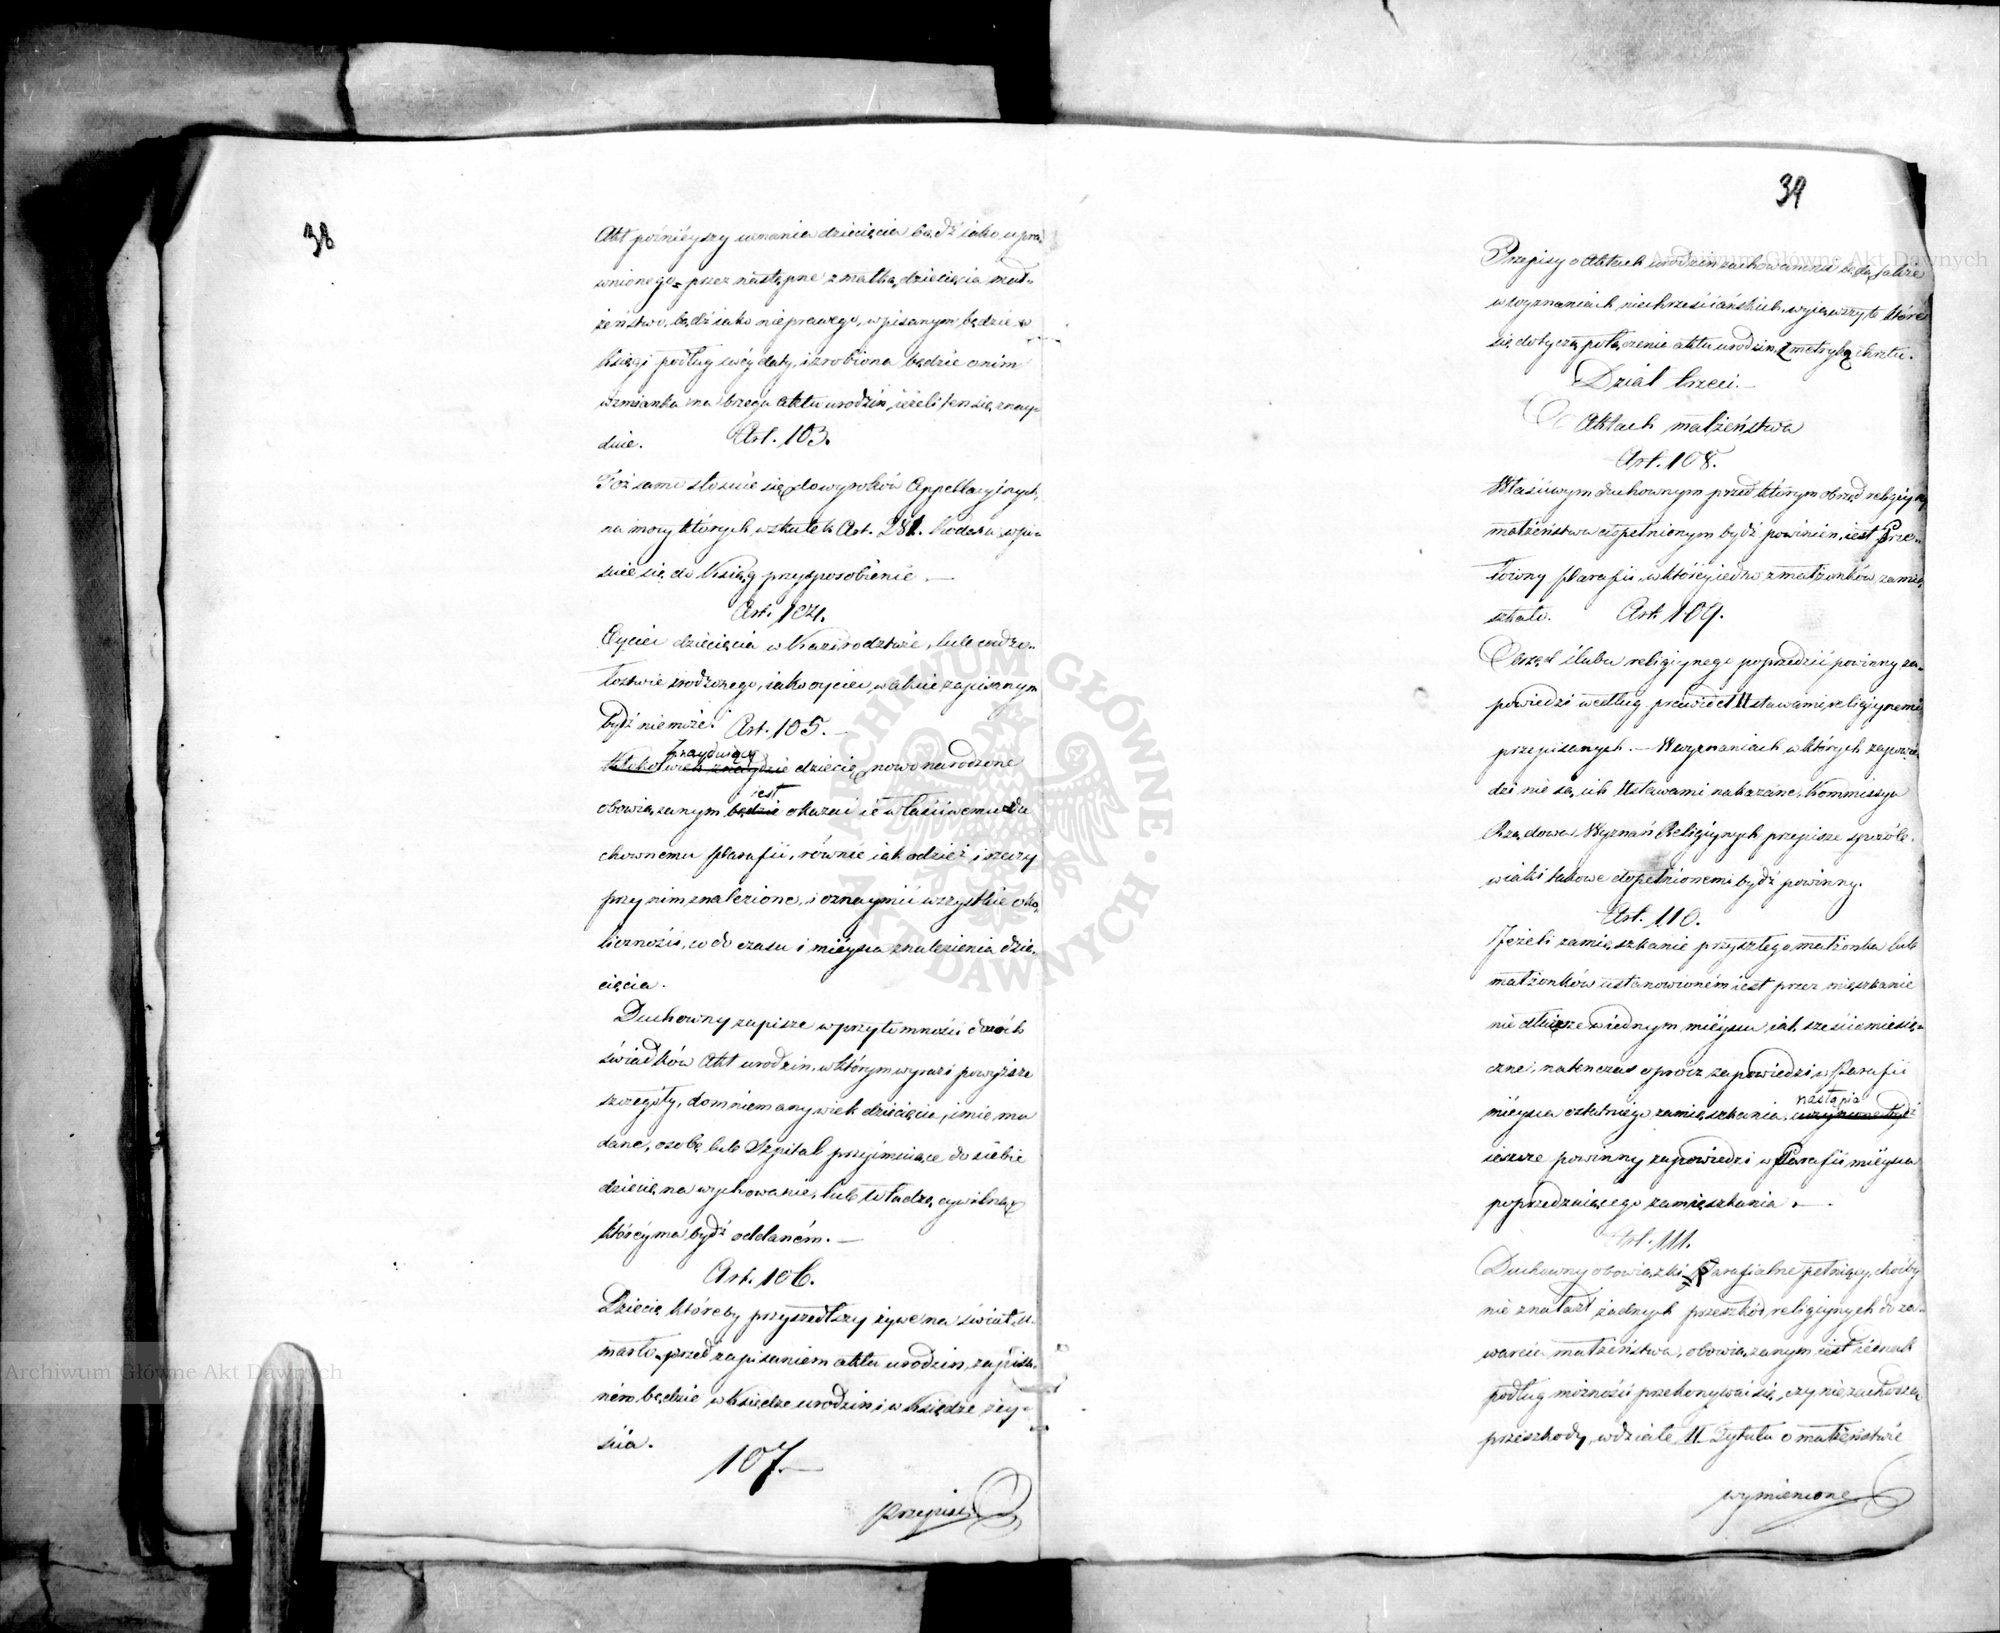 38
Akt poźniéyszy uznania dziecięcia bądź iako upra-
wnionego przez następne z matką dziecięcia mał-
żeństwo, bądź iako nieprawego, wpisanym będzie w
księgi podług swéy daty, i zrobiona będzie o nim
wzmianka na brzegu aktu urodzin, ieżeli ten się znay-
duie. Art. 103.
Toż samo stosuie się do wyroków Appellacyinych,
na mocy których w skutek Art. 281. Kodexu, wpi-
suie się do Ksiąg przysposobienie. —
Art. 104.
Oyciec dziecięcia w Kazirodztwie, lub cudzo-
łoztwie zrodzonego, iako oyciec, w akcie zapisanym
bydź nie może. Art. 105. —
Znayduiący
Ktokolwiek znaydzie dziecię nowonarodzone
iest
obowiązanym będzie okazać ie właściwemu Du
chownemu Parafii, równie iak odzież i rzeczy
przy nim znalezione, i oznaymić wszystkie oko-
liczności, co do czasu i mieysca znalezienia dzie-
cięcia.
Duchowny zapisze w przytomności dwóch
świadków Akt urodzin, w którym wyrazi powyższe
szczegóły, domniemany wiek dziecięcia, imie mu
dane, osobę lub Szpital przyimuiące do siebie
dziecię na wychowanie, lub Władzę cywilną
któréy ma bydź oddaném. —
Art. 106.
Dziecię któreby przyszedłszy żywe na świat, u-
marło przed zapisaniem aktu urodzin, zapisa-
ném będzie w Księdze urodzin i w Księdze zey-
ścia.
107. —
Przepisy
39
Przepisy o Aktach urodzin zachowane są także
w wyznaniach niechrześciańskich, wyiąwszy te które
się dotyczą połączenia aktu urodzin z metryką chrztu.
Dział trzeci. —
O Aktach małżeństwa
Art. 108.
Właściwym duchownym przed którym obrzęd religiyny
małżeństwa dopełnionym bydź powinien, iest Prze-
łożony Parafii, w któréy iedno z małżonków zamie-
szkało. Art. 109.
Obrzęd ślubu religiynego poprzedzić powinny za-
powiedzi według prawideł Ustawami religiynemi
przepisanych. — W wyznaniach w których zapowie-
dzi nie są ich Ustawami nakazane, Kommissya
Rządowa Wyznań Religiynych przepisze sposób,
w iaki takowe dopełnionemi bydź powinny.
Art. 110.
Jeżeli zamieszkanie przyszłego małżonka lub
małżonków ustanowioném iest przez mieszkanie
nie dłuższe w iednym mieyscu, iak sześciomiesię-
czne, natenczas oprócz zapowiedzi w Parafii
nastąpić
mieysca ostatniego zamieszkania, uczynione bydź
ieszcze powinny zapowiedzi w Parafii mieysca
poprzedzaiącego zamieszkania. —
Art. 111.
Duchowny obowiązki Parafialne pełniący, choćby
nie znalazł żadnych przeszkód religiynych do za-
warcia małżeństwa, obowiązanym iest iednak
podług możności przekonywać się, czy nie zachodzą
przeszkody, w dziale II. Tytułu o małżeństwie
wymienione
Archiwum Główne Akt Dawnych
Archiwum Główne Akt Dawnych
ARCHIWUM GŁÓWNE AKT DAWNYCH